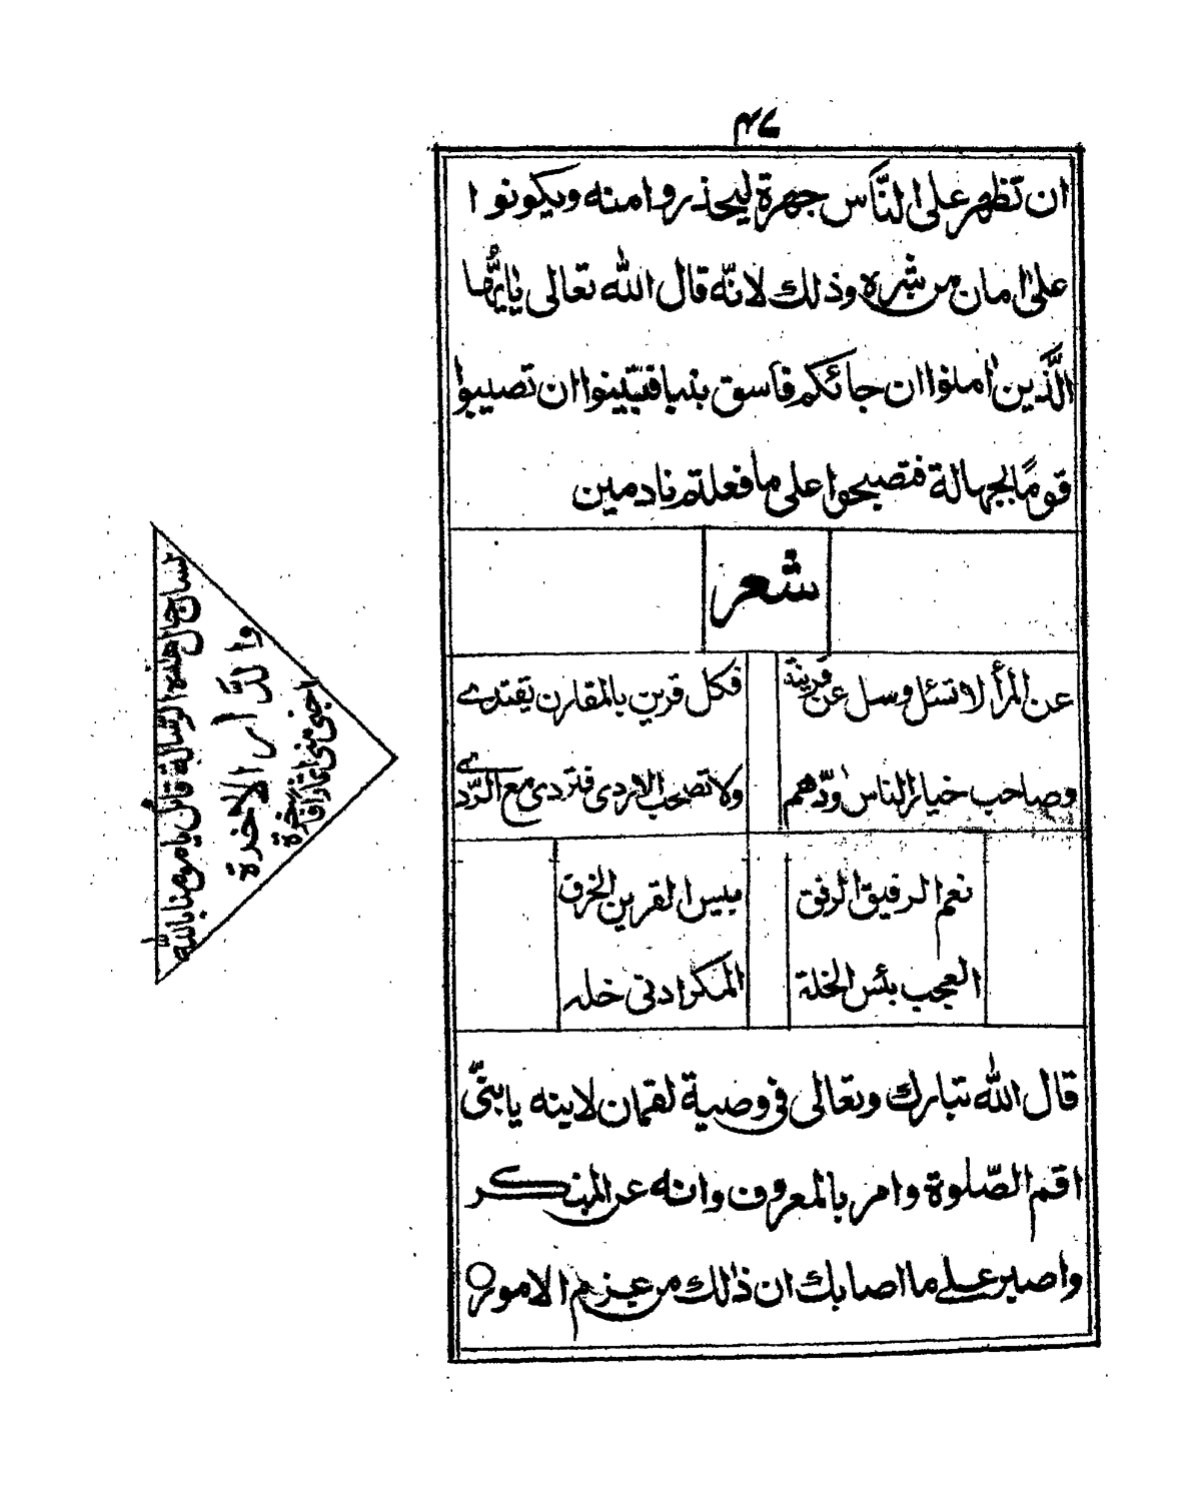 ٤٧
ان تظهر على النّاس جهرة ليحذروا منه ويكونوا
على امان من شره وذلك لانّه قال الله تعالى يايّها
الّذين امنوا ان جائكم فاسق بنبا فتبيّنوا ان تصيبوا
قومًا بجهالة فتصبحوا على ما فعلتم نادمين
شعر
عن المرأ لا تسئل وسل عن قرينة فكل قرين بالمقارن يقتدے
وصاحب خيار الناس ودّهم ولا تصحب الاردى فتردى مع الرّدے
نعم الرفيق الرفق مبيس القرين الخرق
العجب بئس الخلة المكر ادنى خله
قال الله تبارك وتعالى فى وصية لقمان لابنه يا بنىّ
اقم الصّلوة وامر بالمعروف وانه عن المنكر
واصبر على ما اصابك ان ذالك من عزم الامور
نساج هذه الرّسالة قائل يا مومنا بالله
والدّار الاخرة
اجنى منى